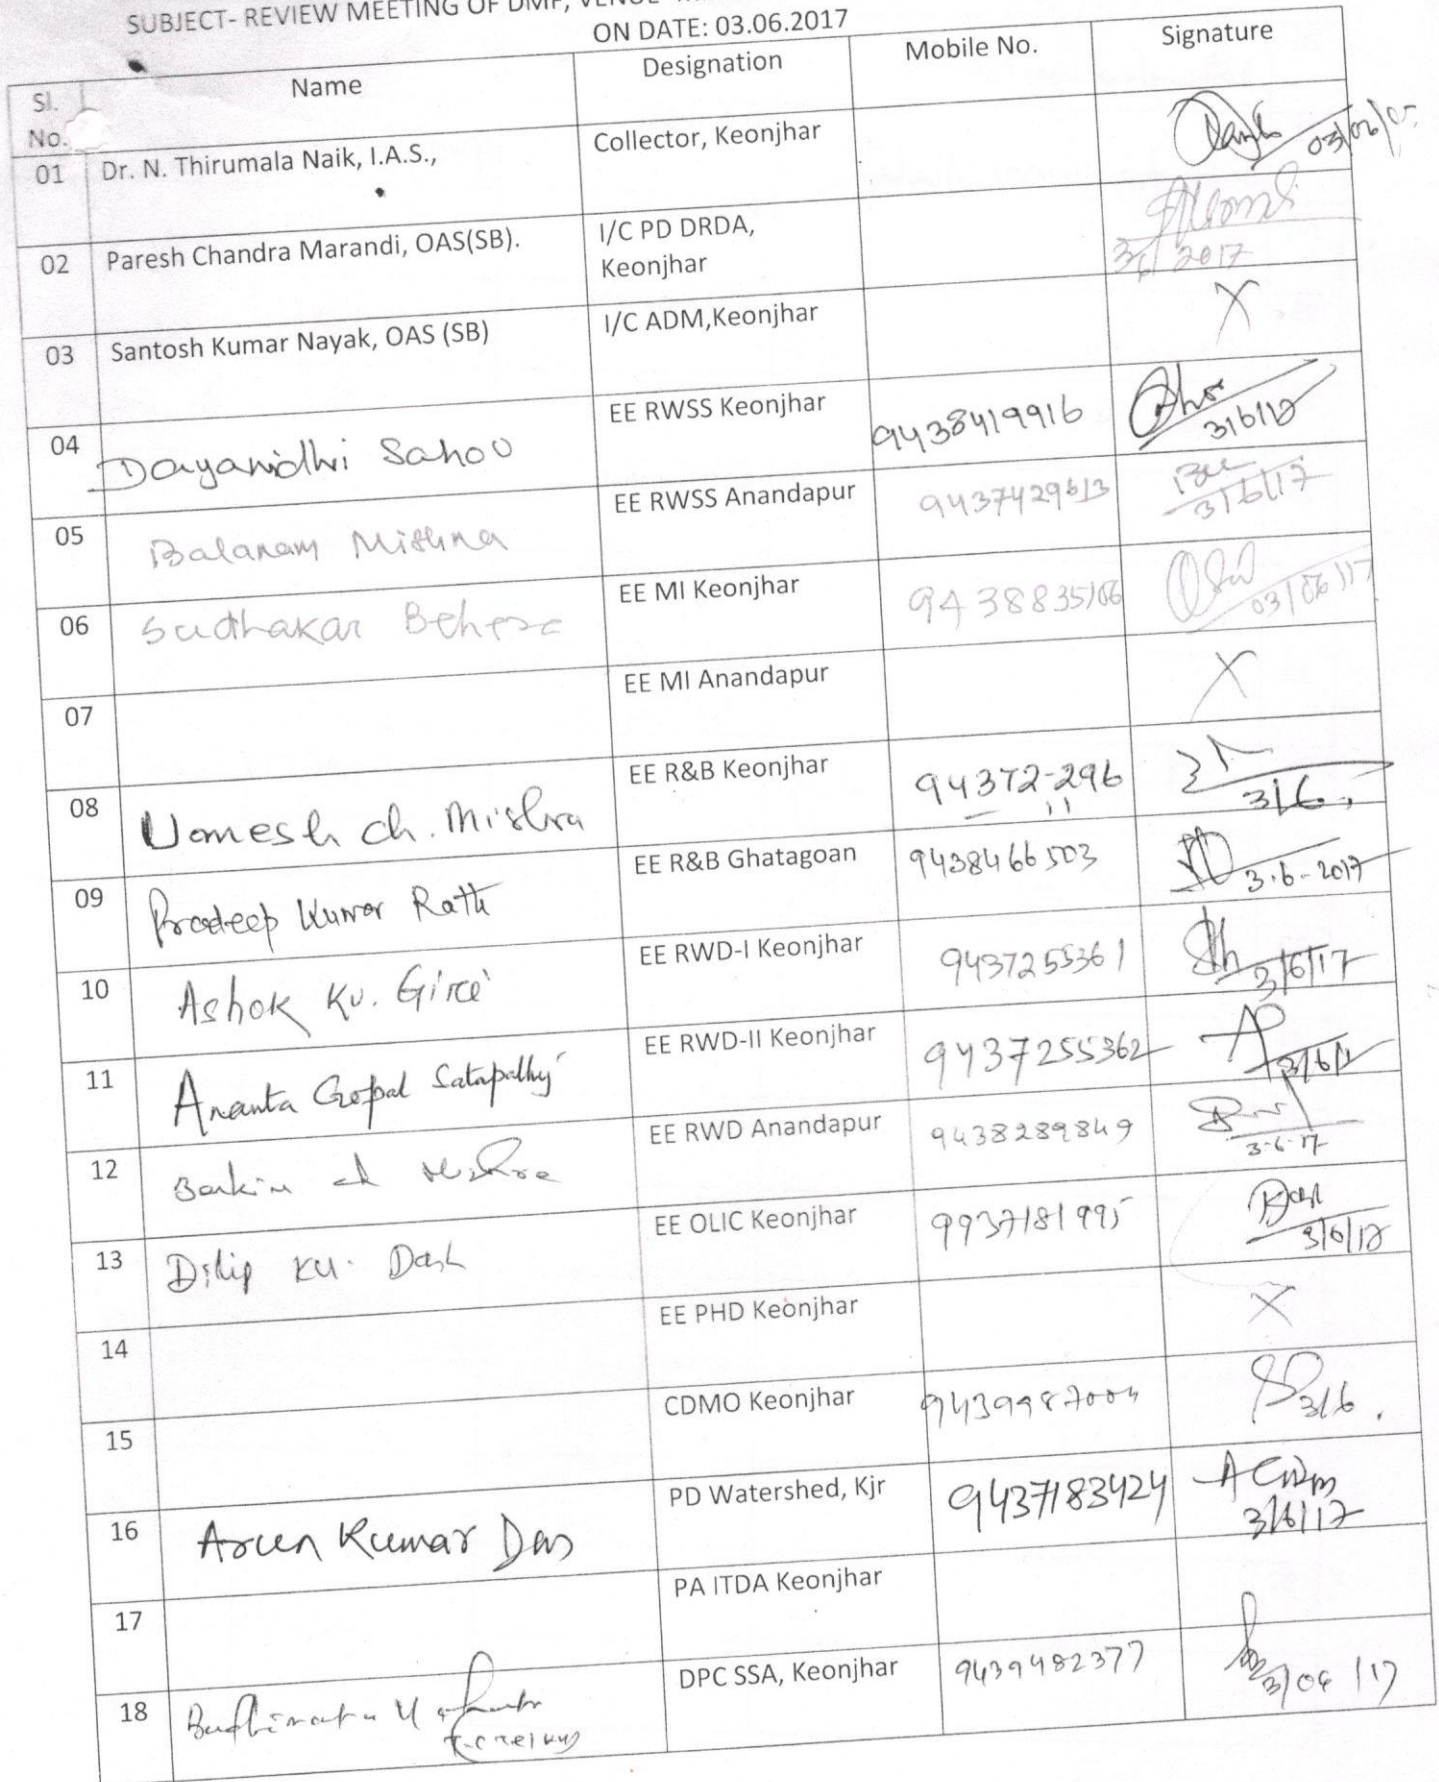 SUBJECT- REVIEW MEETING OF DMF, VENUE
ON DATE: 03.06.2017
Sl. No. Name Designation Mobile No. Signature
01 Dr. N. Thirumala Naik, I.A.S., Collector, Keonjhar 03/06/
02 Paresh Chandra Marandi, OAS(SB). I/C PD DRDA, Keonjhar 3/6/2017
03 Santosh Kumar Nayak, OAS (SB) I/C ADM,Keonjhar X
04 Dayanidhi Sahoo EE RWSS Keonjhar 9438419916 3/6/17
05 Balaram Mishra EE RWSS Anandapur 9437429613 3/6/17
06 Sudhakar Behera EE MI Keonjhar 9438835106 03/06/17
07 EE MI Anandapur X
08 Umesh ch. Mishra EE R&B Keonjhar 94372-296 11 3/6.
09 Pradeep Kumar Rath EE R&B Ghatagoan 9438466503 3-6-2017
10 Ashok Ku. Giri EE RWD-I Keonjhar 9437255361 3/6/17
11 Ananta Gopal Satapathy EE RWD-II Keonjhar 9437255362 3/6/17
12 Bankim ch Mishra EE RWD Anandapur 9438289849 3-6-17
13 Dilip Ku. Dash EE OLIC Keonjhar 9937181995 Dash 3/6/17
14 EE PHD Keonjhar X
15 CDMO Keonjhar 9439987004 3/6.
16 Arun Kumar Das PD Watershed, Kjr 9437183424 3/6/17
17 PA ITDA Keonjhar
18 DPC SSA, Keonjhar 9439482377 3/06/17